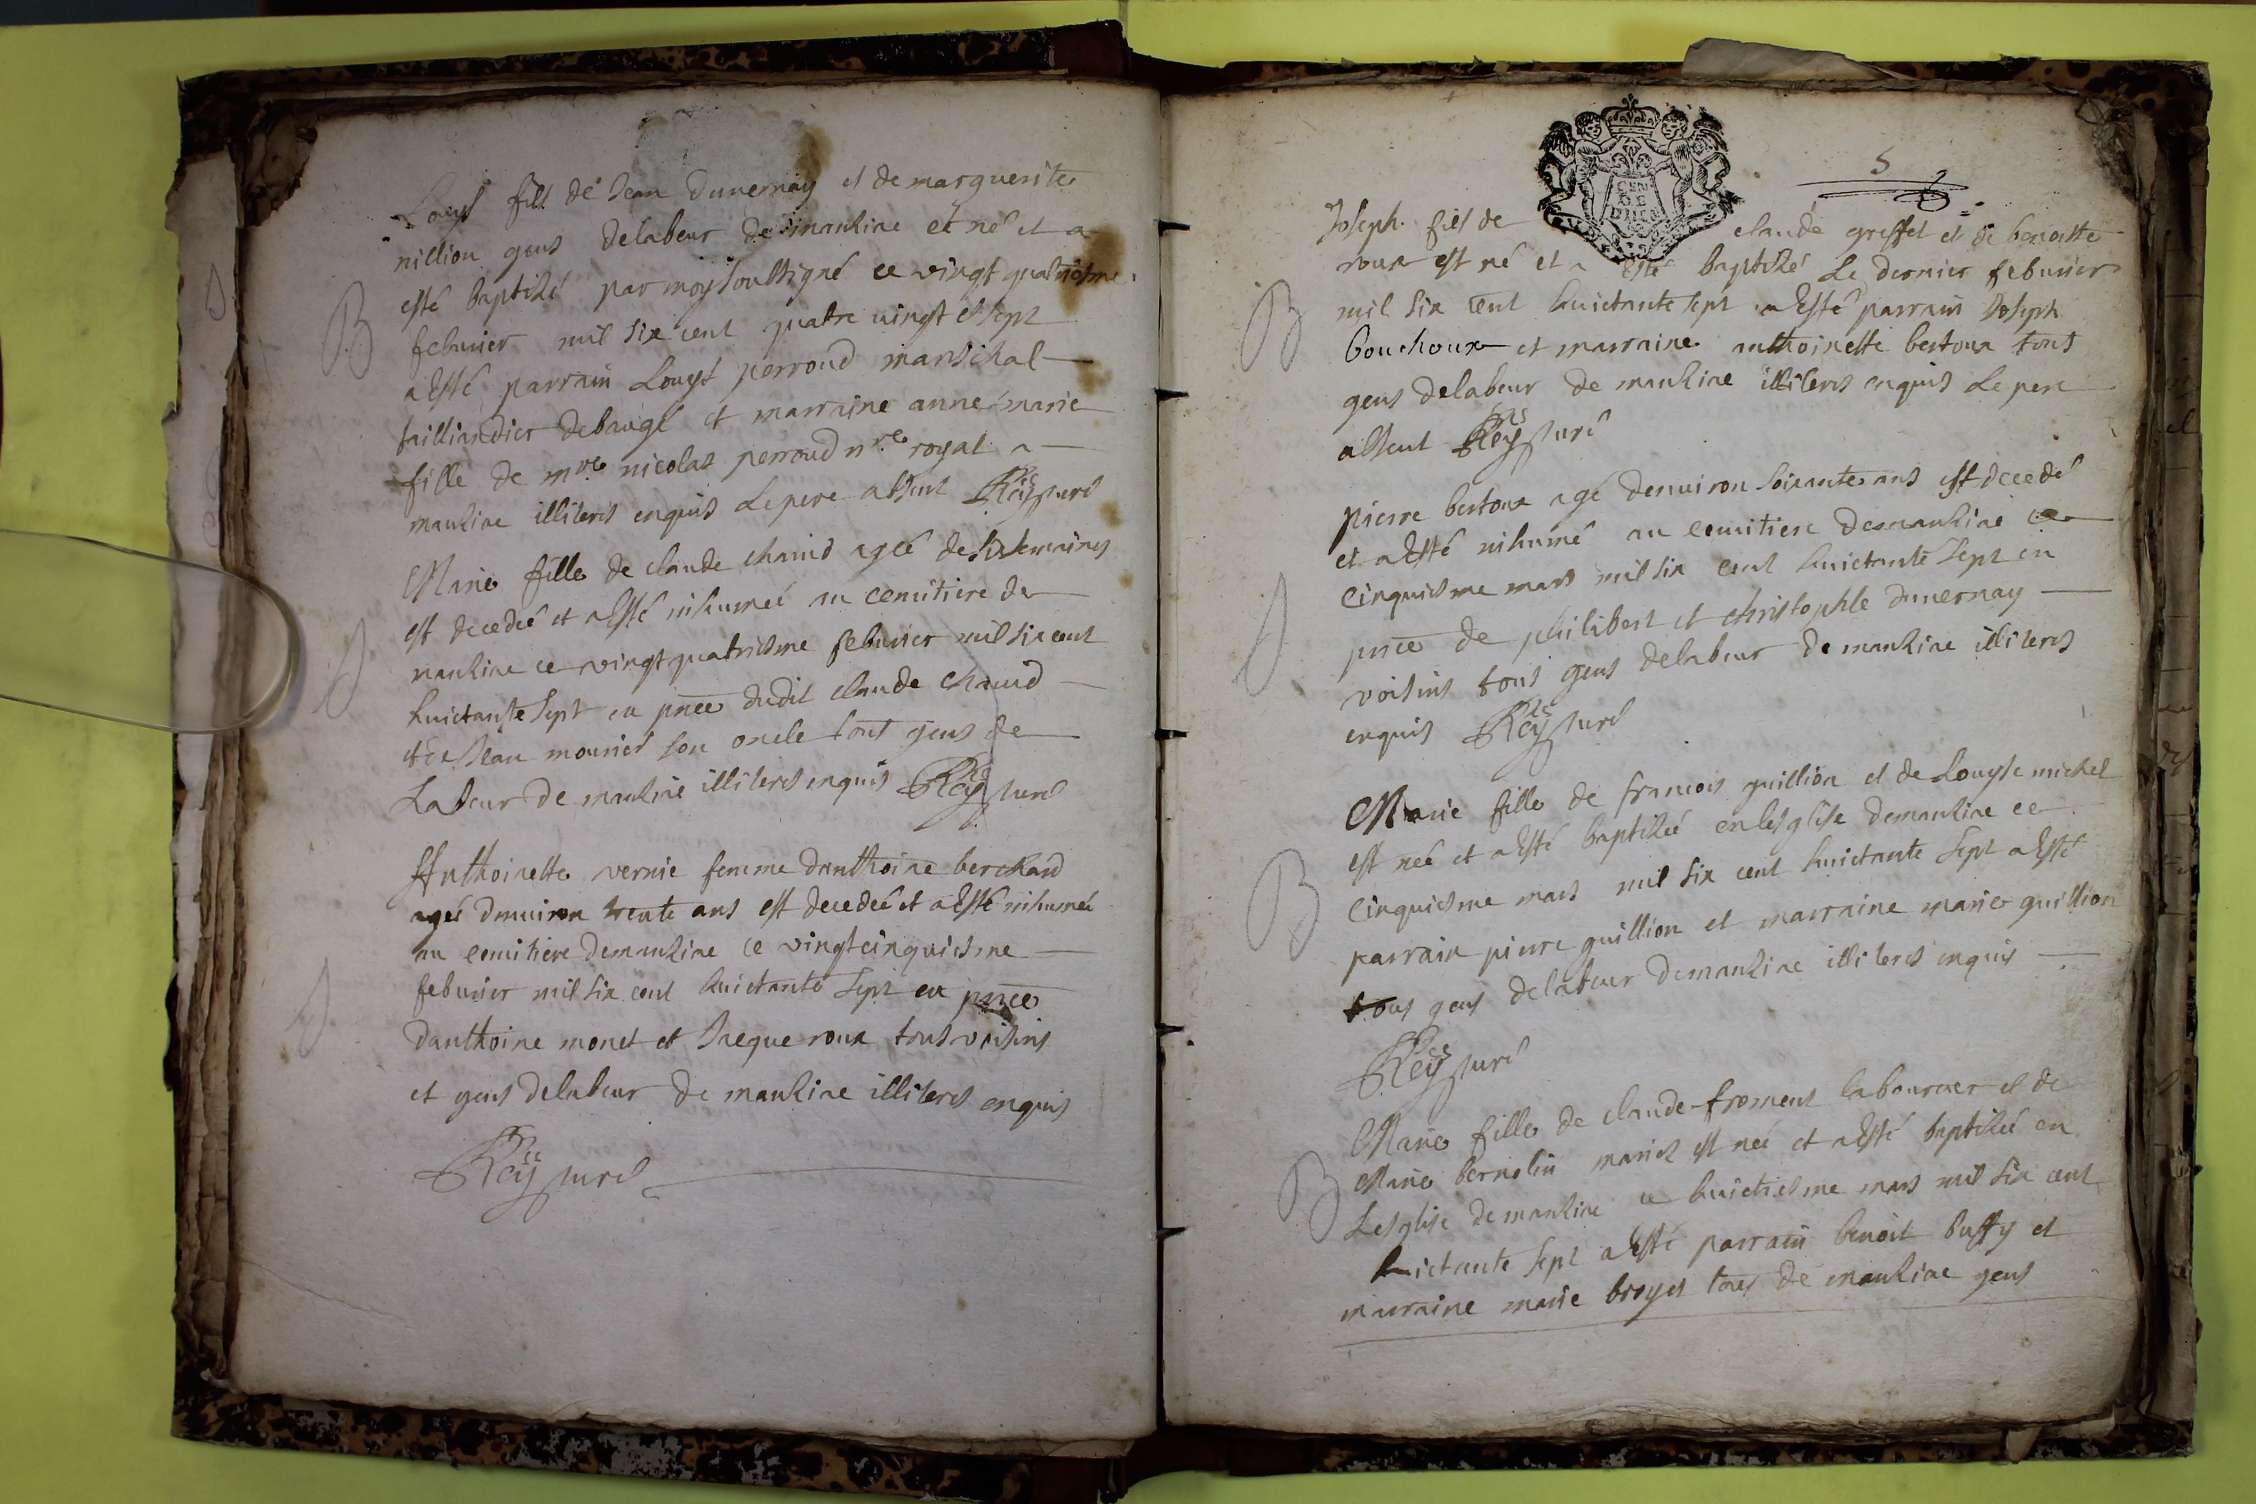 Louys fils de Jean duuernay et de marguerite
nillion gens delabeur de manziac et né et a
B
esté baptizé par moy soussigné ce vingt quatriesme
feburier mil six cent quatre vingt et sept
a esté parrain Louys perroud mareschal
tailliandier debaugé et marraine anne marie
fille de mre nicolas perroud nre royal a
manziac illiterés enquis le pere absent Rey curé
Marie fille de claude chanid agée de six semaines
est decedée et a esté inhumée au cemitiere de
manziac ce vingtquatriesme feburier mil six cent
huictante sept en pnce dudit claude chanid
et de Jean mounier son oncle tout gens de
Labeur de manziac illiterés enquis Rey curé
Anthoinette vernie femme danthoine berchard
agée denuiron trente ans est decedée et a esté inhumée
au cemitiere demanziac ce vingtcinquiesme
feburier mil six cent huictante sept en pnce
danthoine monet et Jacque roux tous voisins
et gens delabeur de manziac illiterés enquis
Rey curé
5
CEN
DE
Joseph fils de claude greffet et de benoitte
roux est né et a esté baptizé Le dernier feburier
B
mil six cent huictante sept a esté parrain Joseph
bouchoux et marraine anthoinette bertoux tous
gens delabeur de manziac illiterés enquis Le pere
absent Rey curé
pierre bertoux agé denuiron soixante ans est decedé
et a esté inhumé au cemitiere demanziac ce
cinquiesme mars mil six cent huictante sept en
pnce de philibert et christophle duuernay
voisins tous gens delabeur de manziac illiterés
enquis Rey curé
Marie fille de francois guillion et de Louyse michel
est née et a esté baptizée en lesglise demanziac ce
B
cinquiesme mars mil six cent huictante sept a esté
parrain pierre guillion et marraine marie guillion
tous gens delabeur demanziac illiterés enquis
Rey curé
Marie fille de claude froment laboureur et de
Marie bernolin mariés est née et a esté baptizée en
B
Lesglise demanziac ce huictiesme mars mil six cent
huictante sept a esté parrain benoit buffy et
marraine marie broyer tous de manziac gens